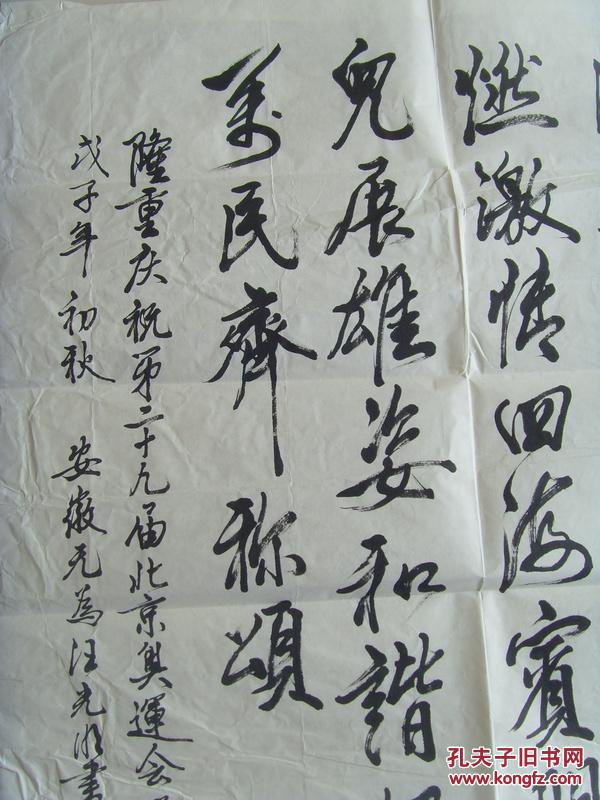 燃激情四海賓朋
兒展雄姿和諧
萬民齊称頌
隆重庆祝第二十九届北京奥運会
戊子年初秋 安徽无為汪光明書
孔夫子旧书网
www.kongfz.com